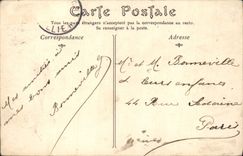 Carte Postale
Tous les pays étrangers n'acceptent pas la correspondance au recto.
Se renseigner à la poste.
Correspondance
Adresse
Mes amitiés
mes bons amis
Bonneville
M. et M. Bonneville
et leurs enfants
44 Rue
Paris